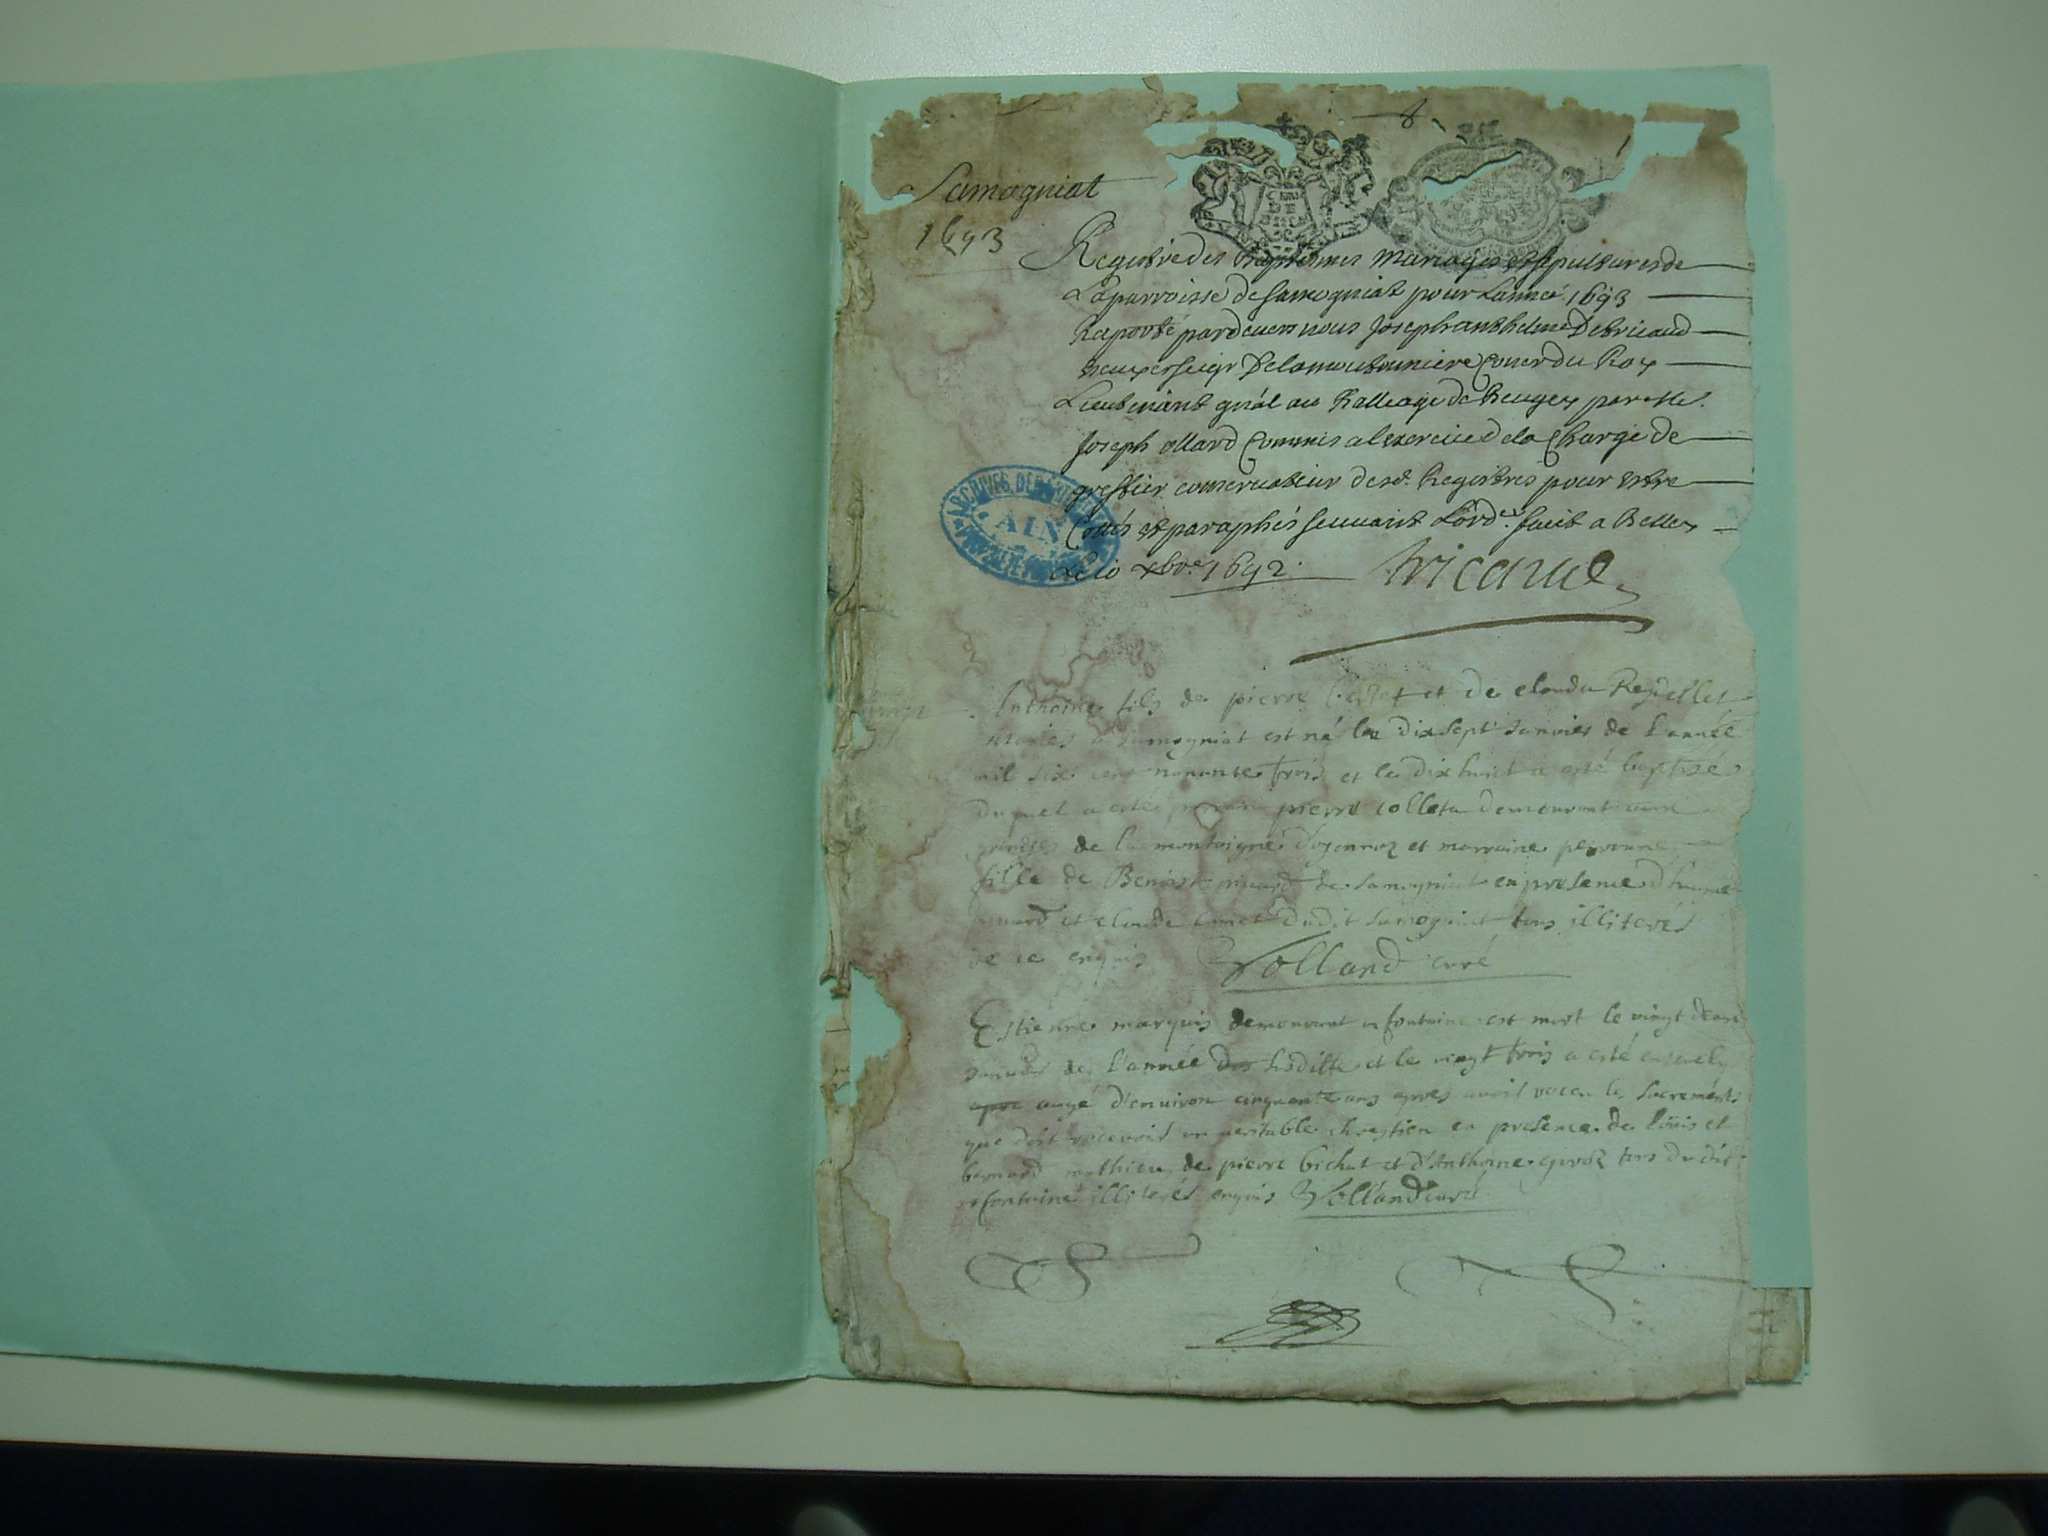 Samogniat
1693
Registre des Baptesmes Mariages et sepultures de
La parroisse de Samogniat pour Lannée 1693
Raporté pardevers nous Joseph anthelme De tricaud
Lieutenant gnāl au Balliage de Beugey par Me.
Joseph ollard Commis a lexercice de la Charge de
greffier conservateur desd. Registres pour estre
Cottés et paraphés suivant Lord.e faict a Belley
Le 10 xbre 1692.
tricaud
ARCHIVES DEP
AIN
Anthoine fils de pierre et de clauda Reydellet
mariés a Samogniat est né le dixsept Janvier de l'année
mil six cent nonante trois et le dixhuict a esté baptisé
duquel a esté parrain pierre colleta demeurant
de la montaigne d'oyonnaz et marraine peronne
fille de Benoist de Samogniat en presence
et claude dudit Samogniat tous illiterés
de ce enquis Volland curé
Estienne marquis demeurant a fontaine est mort le vingt deux
Janvier de l'année susditte et le vingt trois a esté ensevely
aagé d'environ cinquante ans apres avoir receu les sacrements
que doit recevoir un veritable chrestien en presence de Loüis et
bernard mathieu de pierre bichat et d'Anthoine tous dudit
fontaine illiterés enquis Volland curé